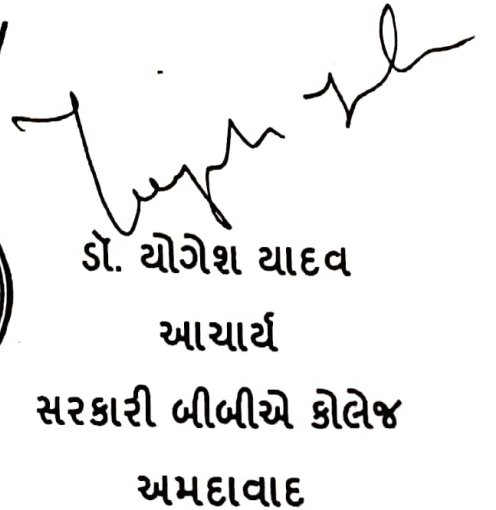 ડૉ. યોગેશ યાદવ
આચાર્ય
સરકારી બીબીએ કોલેજ
અમદાવાદ